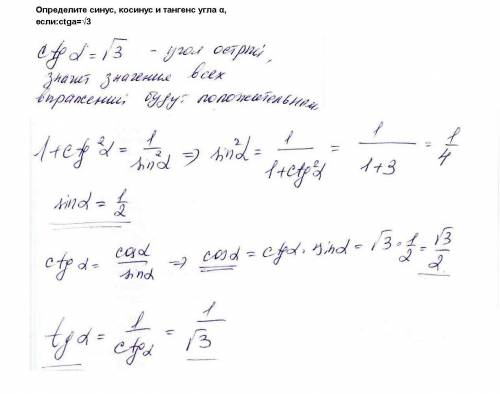 Определите синус, косинус и тангенс угла α,
если:ctgα=√3
ctg α = √3 - угол острый,
значит значения всех
выражений будут положительным
1 + ctg²α = 1/sin²α ⇒ sin²α = 1/(1+ctg²α) = 1/(1+3) = 1/4
sin α = 1/2
ctg α = cos α/sin α ⇒ cos α = ctg α · sin α = √3 · 1/2 = √3/2
tg α = 1/ctg α = 1/√3